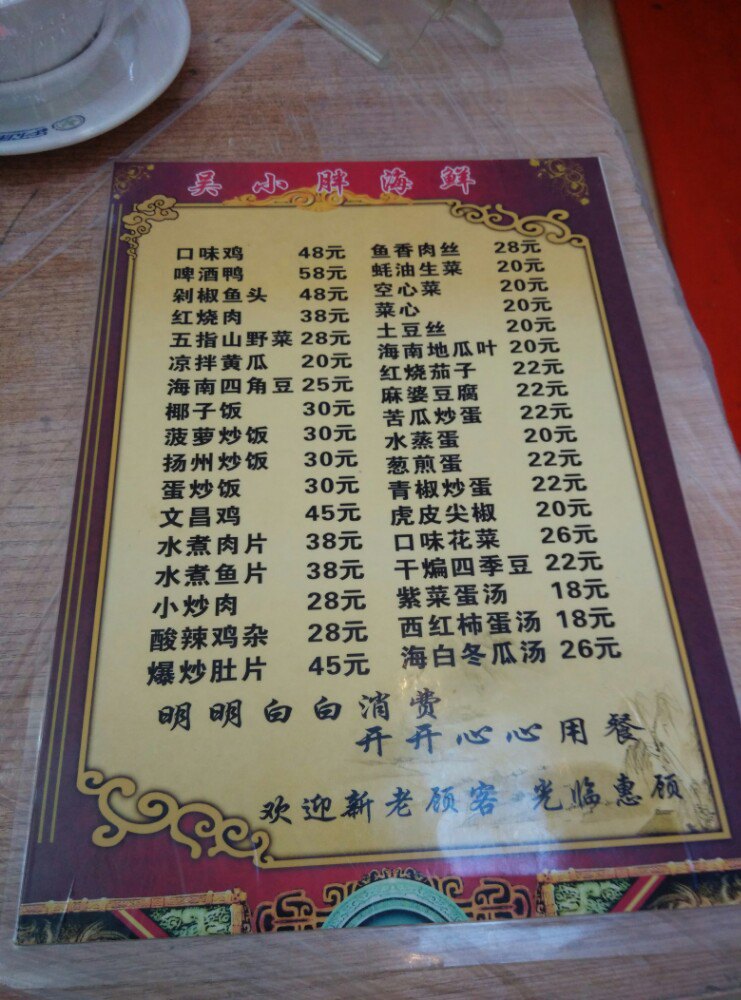 吴小胖海鲜
口味鸡 48元
啤酒鸭 58元
剁椒鱼头 48元
红烧肉 38元
五指山野菜 28元
凉拌黄瓜 20元
海南四角豆 25元
椰子饭 30元
菠萝炒饭 30元
扬州炒饭 30元
蛋炒饭 30元
文昌鸡 45元
水煮肉片 38元
水煮鱼片 38元
小炒肉 28元
酸辣鸡杂 28元
爆炒肚片 45元
鱼香肉丝 28元
蚝油生菜 20元
空心菜 20元
菜心 20元
土豆丝 20元
海南地瓜叶 20元
红烧茄子 22元
麻婆豆腐 22元
苦瓜炒蛋 22元
水蒸蛋 20元
葱煎蛋 22元
青椒炒蛋 22元
虎皮尖椒 20元
口味花菜 26元
干煸四季豆 22元
紫菜蛋汤 18元
西红柿蛋汤 18元
海白冬瓜汤 26元
明明白白消费
开开心心用餐
欢迎新老顾客 光临惠顾